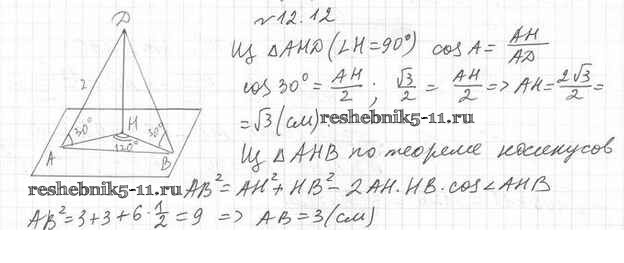 №12.12
D
2
H
30°
30°
120°
A
B
Из △AHD (∠H=90°) cos A = AH/AD
cos 30° = AH/2 ; √3/2 = AH/2 => AH = 2√3/2 =
= √3 (см).
reshebnik5-11.ru
Из △AHB по теореме косинусов
reshebnik5-11.ru
AB² = AH² + HB² - 2AH·HB·cos∠AHB
AB² = 3+3+6·1/2 = 9 => AB = 3 (см)